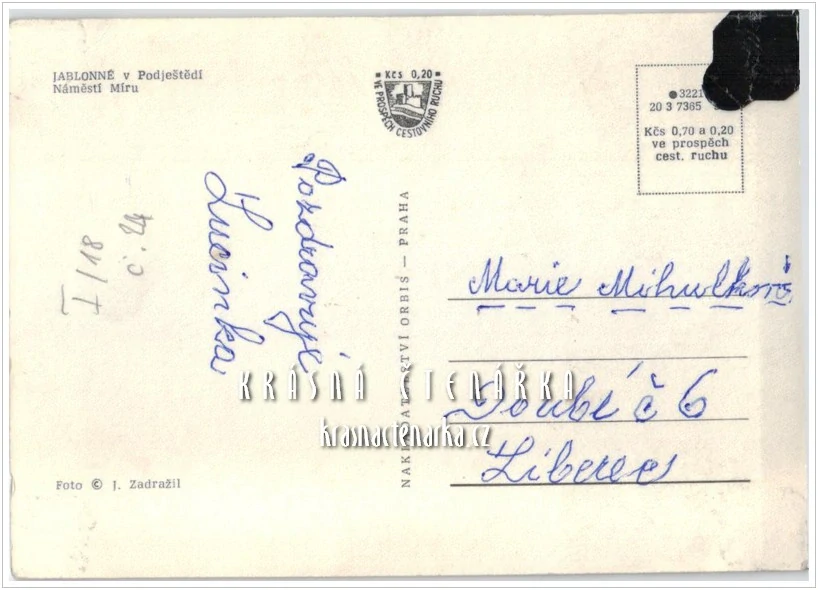 JABLONNÉ v Podještědí
Náměstí Míru
Kčs 0,20
VE PROSPĚCH CESTOVNÍHO RUCHU
3221
20 3 7365
Kčs 0,70 a 0,20
ve prospěch
cest. ruchu
Pozdravuje
Lucinka
I/18
č.
NAKLADATELSTVÍ ORBIS — PRAHA
Marie Mihulková
Doubí č 6
Liberec
KRÁSNÁ ČTENÁŘKA
krasnactenarka.cz
Foto © J. Zadražil